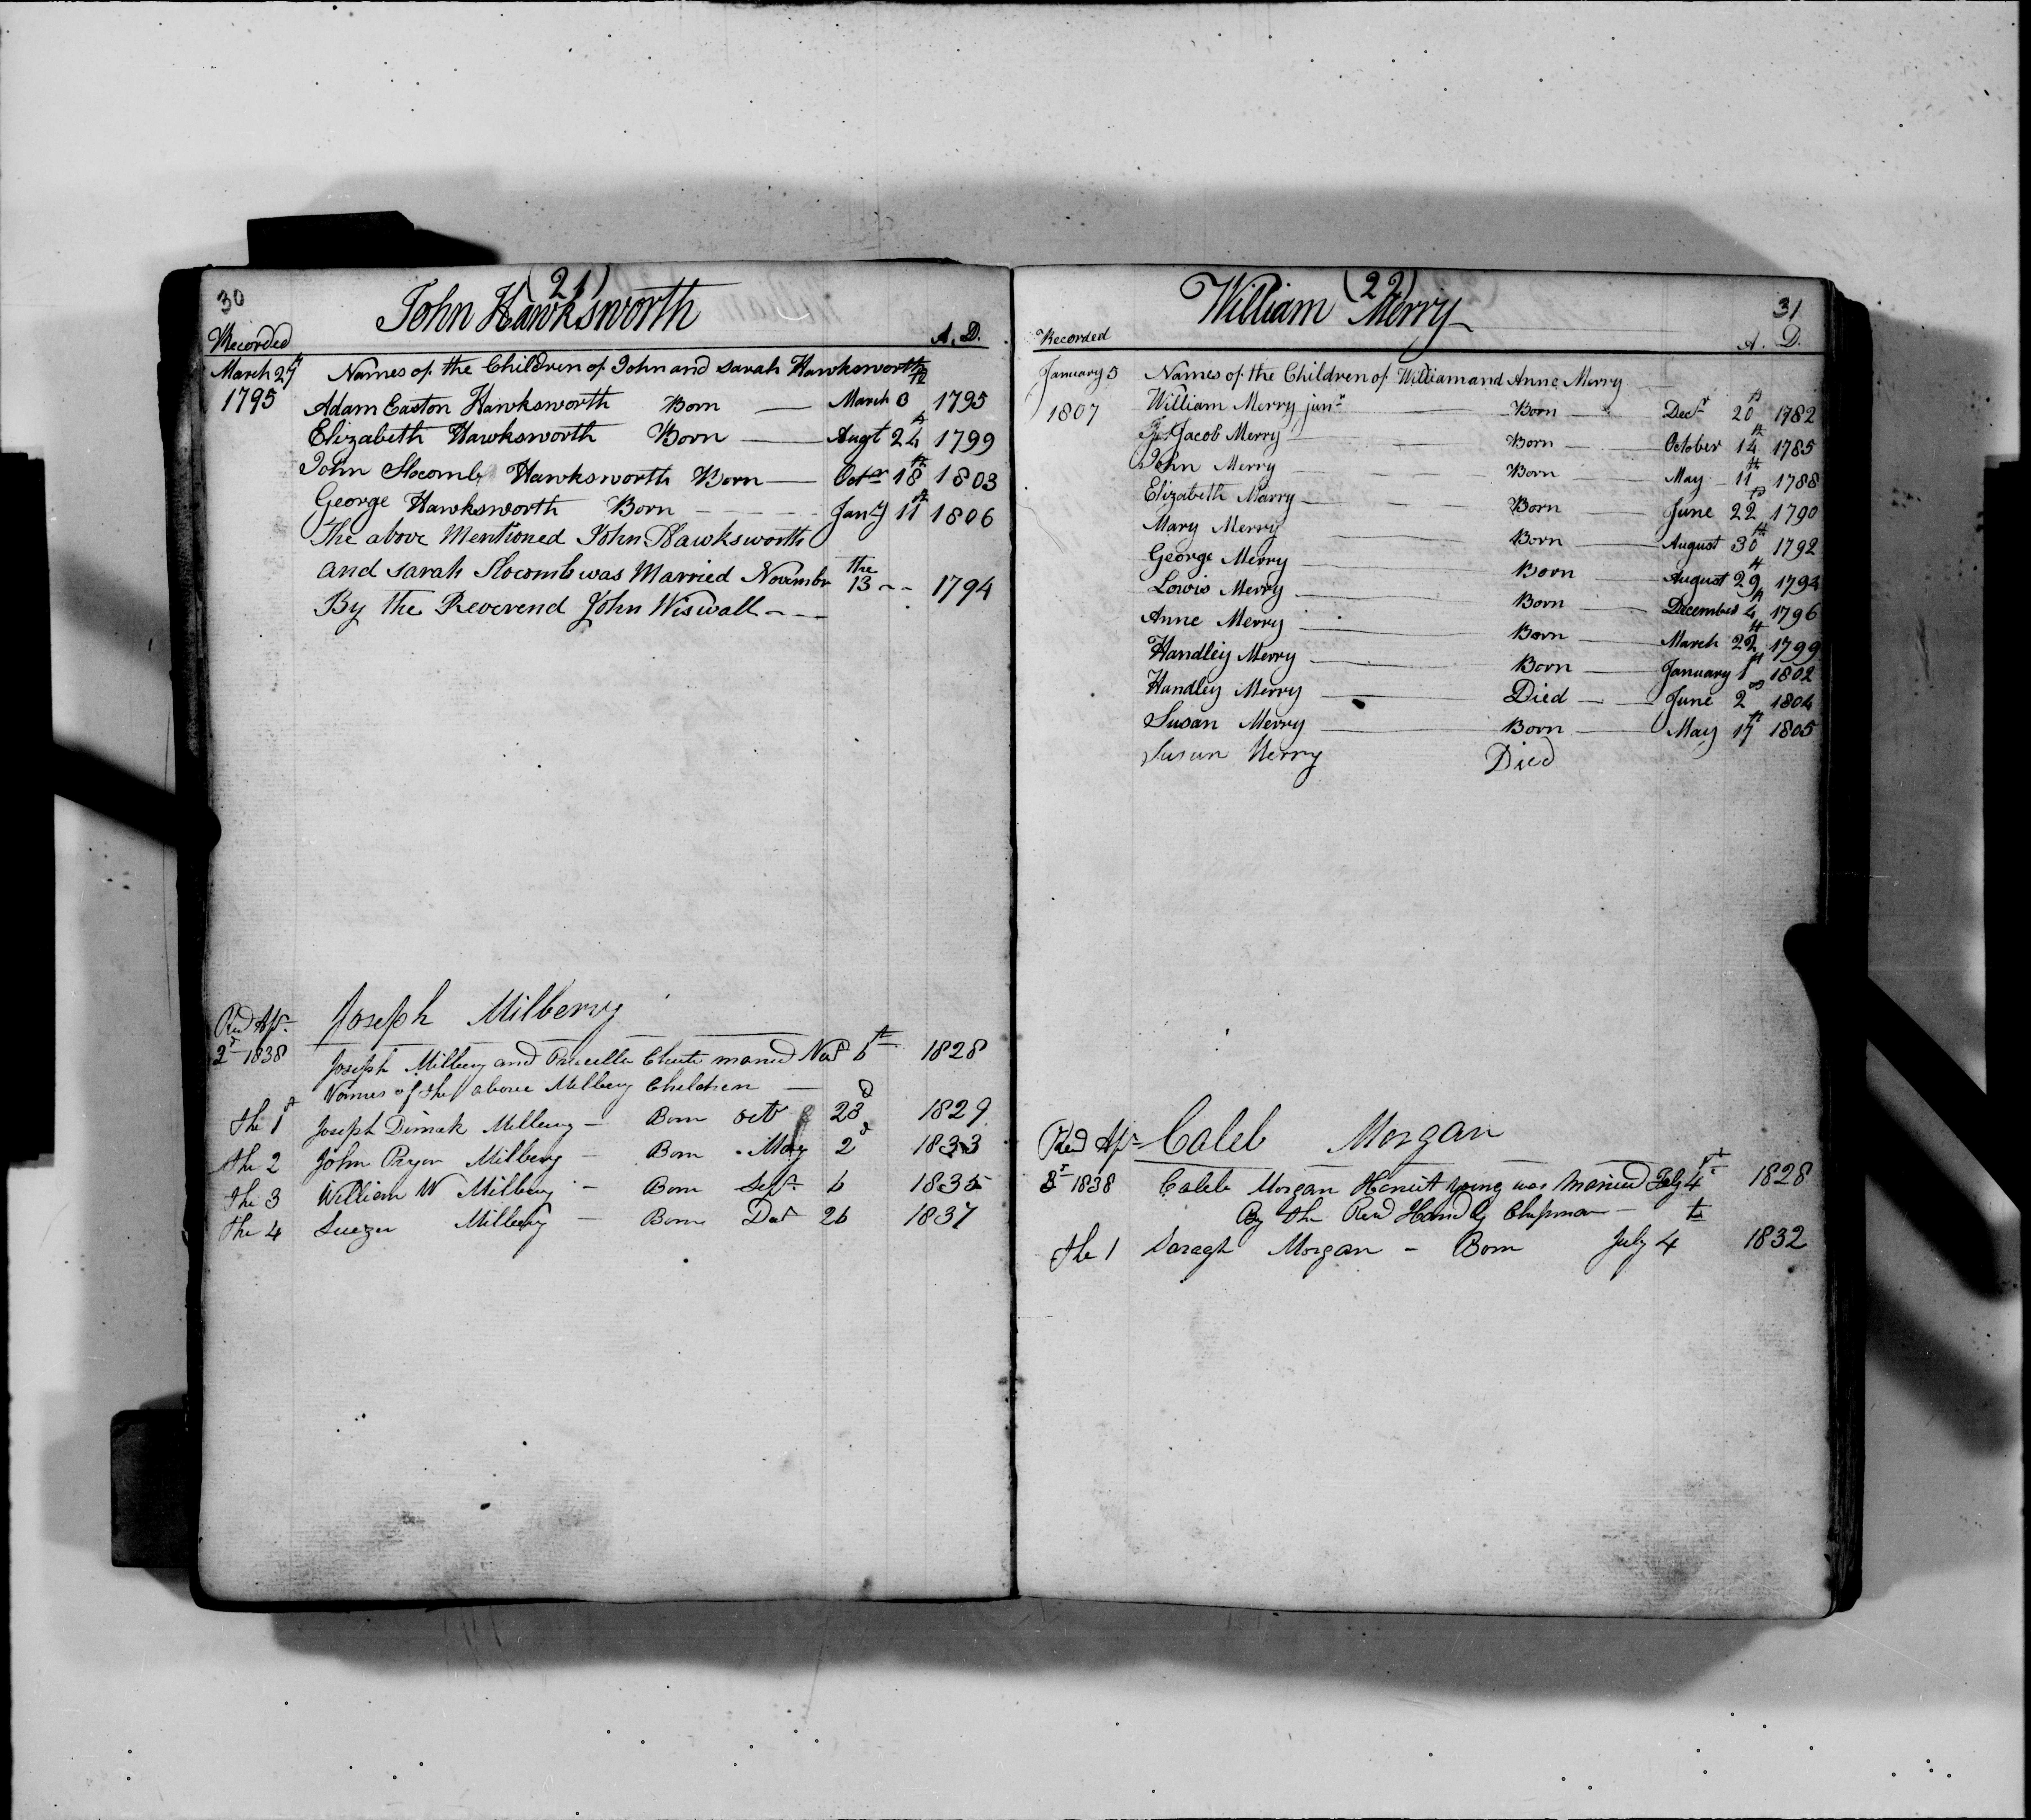 30
(21)
John Hawksworth
Recorded A. D.
March 27th Names of the Children of John and Sarah Hawksworth
1795 Adam Easton Hawksworth Born — March 8th 1795
Elizabeth Hawksworth Born — Augt 24th 1799
John Slocomb Hawksworth Born — Octr 18th 1803
George Hawksworth Born - - - Jany 11th 1806
The above Mentioned John Hawksworth
and Sarah Slocomb was Married Novembr the 13 - - 1794
By the Reverend John Wiswall - —
Joseph Milberry
Red Ap.
2d 1838 Joseph Milbery and Precella Chute maried Nov 6th 1828
Names of the above Milbery Children —
the 1st Joseph Dimak Milbery — Born Oct 23d 1829
the 2 John Pryor Milbery — Born May 2d 1833
the 3 William W Milbery — Born Sept. 6 1835
the 4 Suezen Milbery — Born Det 26 1837
(22)
William Merry
31
Recorded A. D.
January 5 Names of the Children of William and Anne Merry
1807 William Merry junr — Born — Decr 20th 1782
Jacob Merry — Born — October 14th 1785
John Merry — Born — May 11th 1788
Elizabeth Marry — Born — June 22d 1790
Mary Merry — Born — August 30th 1792
George Merry — Born — August 29th 1794
Lowis Merry — Born — December 4th 1796
Anne Merry — Born — March 22th 1799
Handley Merry — Born — January 1st 1802
Handley Merry — Died — June 2nd 1804
Susan Merry — Born — May 17th 1805
Susan Merry Died
Red Ap Caleb Morgan
1838 Caleb Morgan Heneritt young was Maried July 4th 1828
By the Revd Handly Chipman —
the 1 Saragh Morgan — Born July 4th 1832